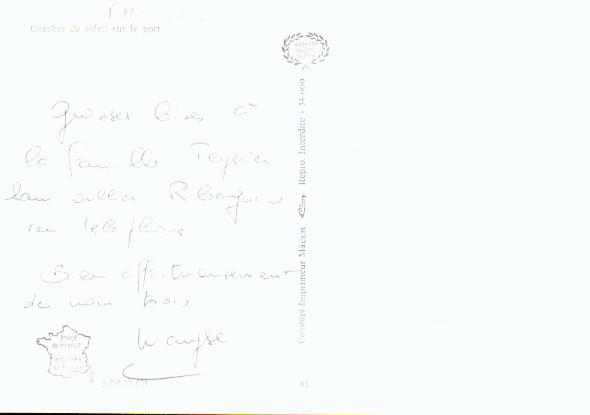 Coucher de soleil sur le port
Grosses bises à
la famille Teyssier
sans oublier R
en téléphone
Bien affectueusement
de nous trois.
Image
de France
Imprimée
en France
Combier Imprimeur Mâcon
Repro. Interdite - 34-000
81